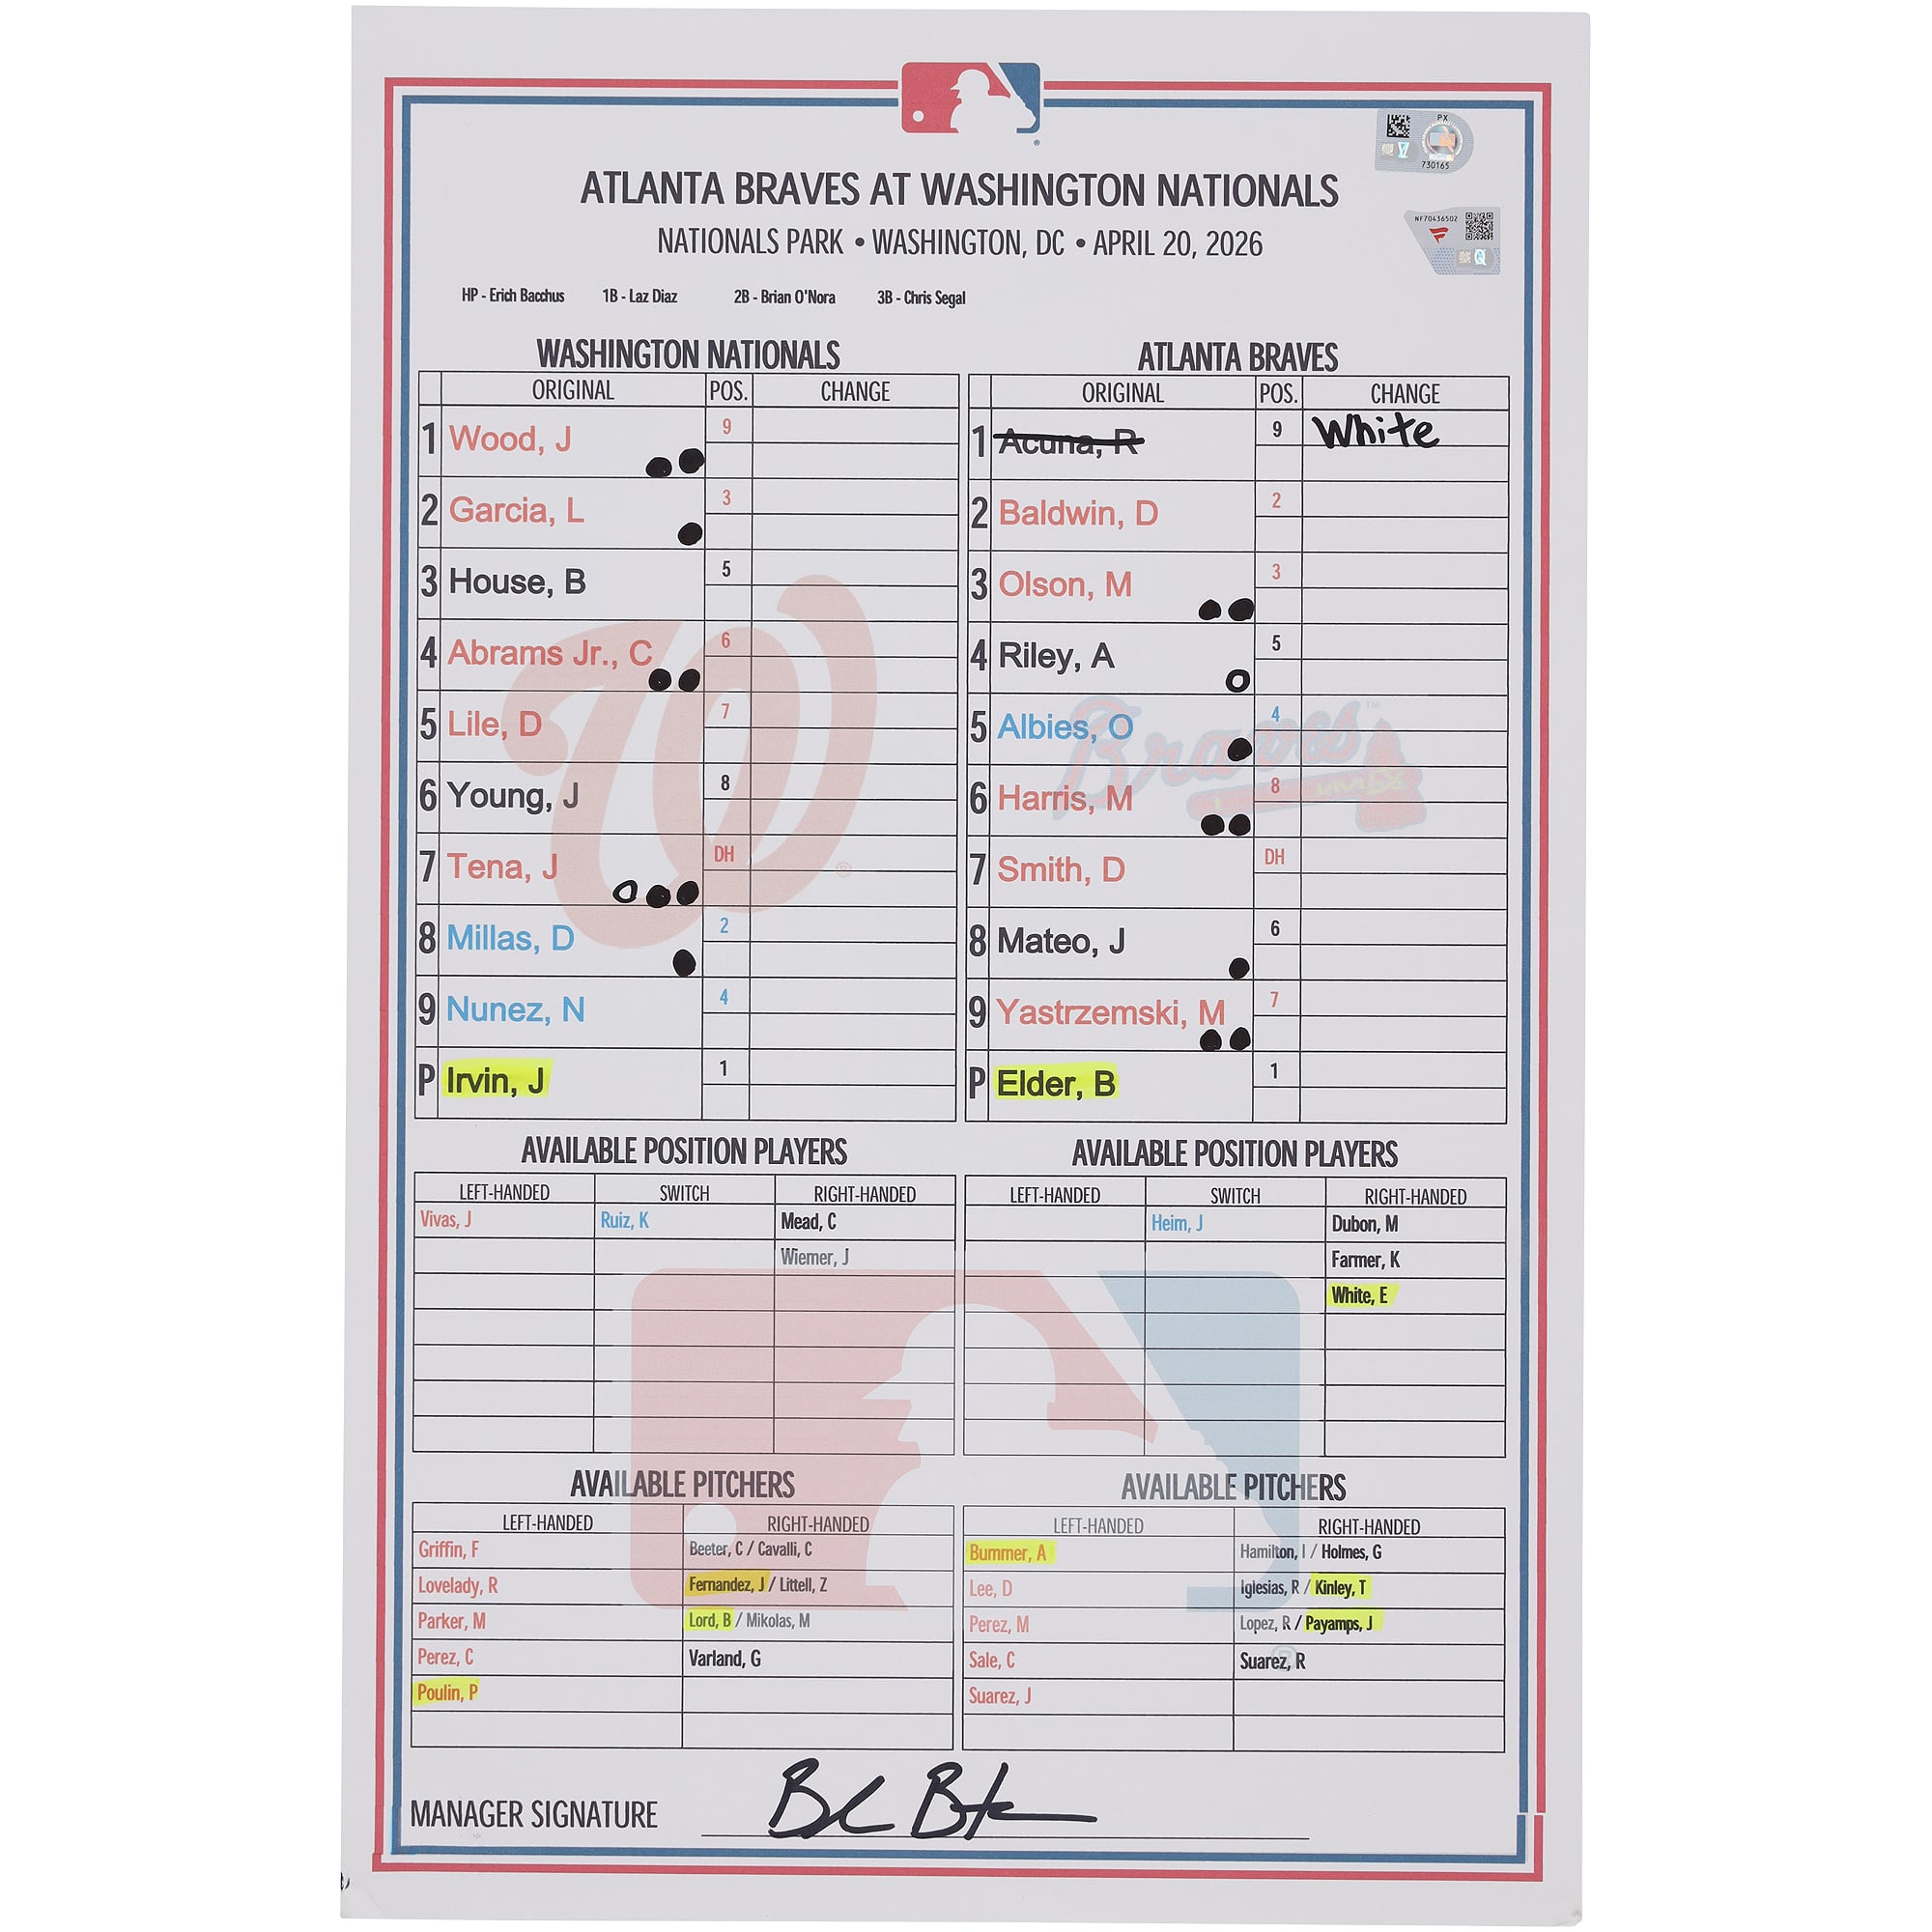 PX
730165
ATLANTA BRAVES AT WASHINGTON NATIONALS
NF70436502
NATIONALS PARK • WASHINGTON, DC • APRIL 20, 2026
HP - Erich Bacchus 1B - Laz Diaz 2B - Brian O'Nora 3B - Chris Segal
WASHINGTON NATIONALS
ORIGINAL POS. CHANGE
1 Wood, J 9
2 Garcia, L 3
3 House, B 5
4 Abrams Jr., C 6
5 Lile, D 7
6 Young, J 8
7 Tena, J DH
8 Millas, D 2
9 Nunez, N 4
P Irvin, J 1
ATLANTA BRAVES
ORIGINAL POS. CHANGE
1 Acuna, R 9 White
2 Baldwin, D 2
3 Olson, M 3
4 Riley, A 5
5 Albies, O 4
6 Harris, M 8
7 Smith, D DH
8 Mateo, J 6
9 Yastrzemski, M 7
P Elder, B 1
Braves
AVAILABLE POSITION PLAYERS
LEFT-HANDED SWITCH RIGHT-HANDED
Vivas, J Ruiz, K Mead, C
Wiemer, J
AVAILABLE POSITION PLAYERS
LEFT-HANDED SWITCH RIGHT-HANDED
Heim, J Dubon, M
Farmer, K
White, E
AVAILABLE PITCHERS
LEFT-HANDED RIGHT-HANDED
Griffin, F Beeter, C / Cavalli, C
Lovelady, R Fernandez, J / Littell, Z
Parker, M Lord, B / Mikolas, M
Perez, C Varland, G
Poulin, P
AVAILABLE PITCHERS
LEFT-HANDED RIGHT-HANDED
Bummer, A Hamilton, I / Holmes, G
Lee, D Iglesias, R / Kinley, T
Perez, M Lopez, R / Payamps, J
Sale, C Suarez, R
Suarez, J
MANAGER SIGNATURE